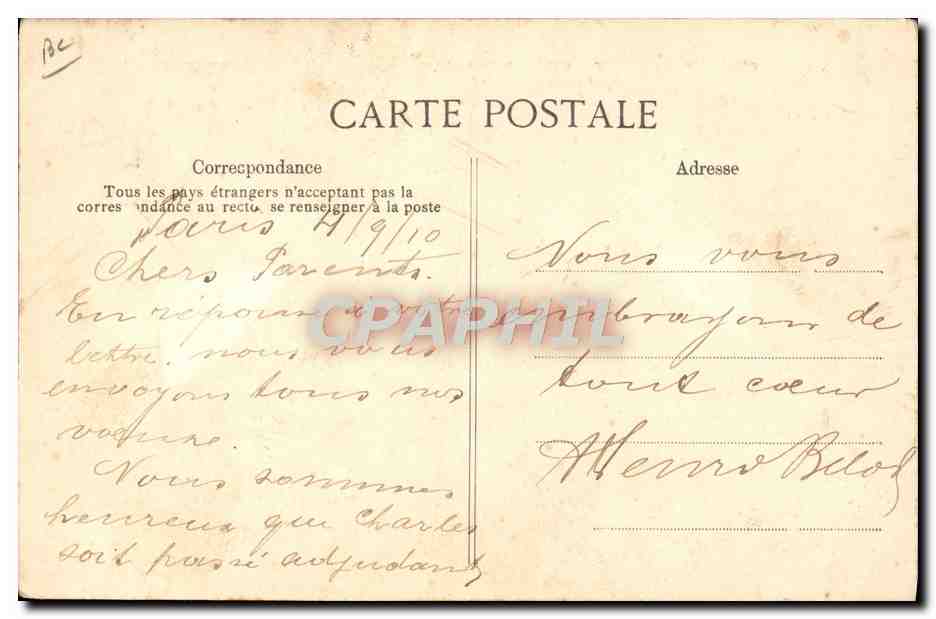 BC
CARTE POSTALE
Correspondance
Tous les pays étrangers n'acceptant pas la
corres ndance au recto, se renseigner à la poste
Adresse
Paris 4/9/10
Chers Parents.
En réponse a votre
lettre, nous vous
envoyons tous nos
voeuxe.
Nous sommes
heureux que Charles
soit passé adjudant
Nous vous
embrassons de
tout cœur
CPAPHIL